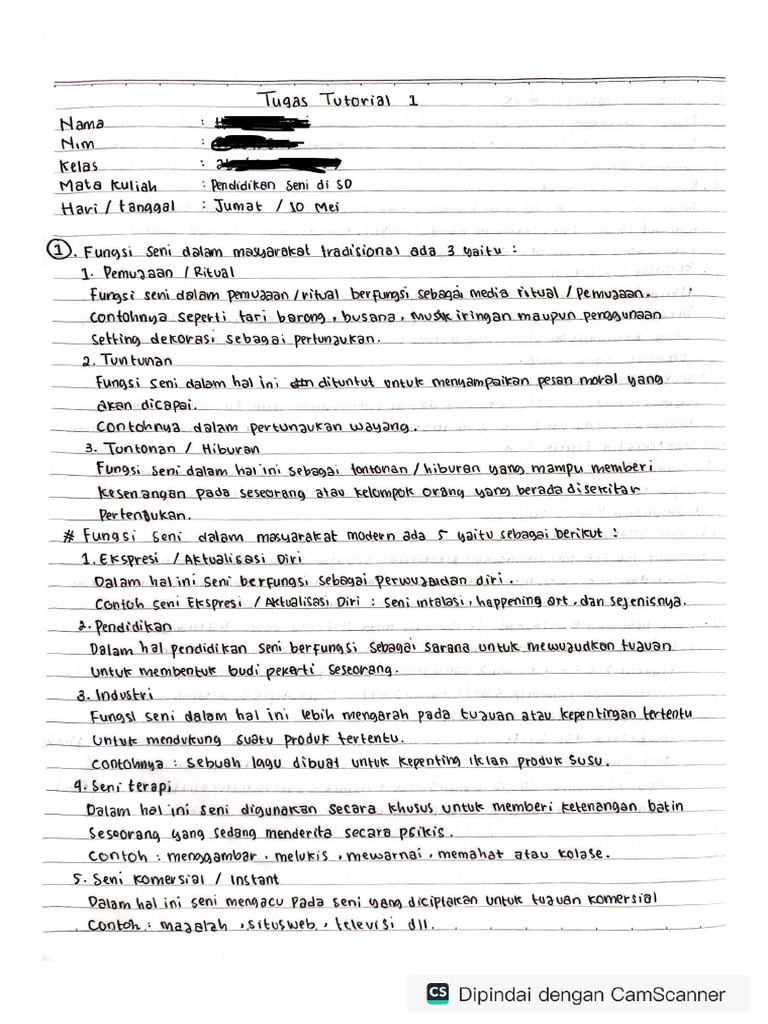 Tugas Tutorial 1
Nama :
Nim :
Kelas :
Mata Kuliah : Pendidikan Seni di SD
Hari / tanggal : Jumat / 10 Mei
1. Fungsi seni dalam masyarakat tradisional ada 3 yaitu :
1. Pemujaan / Ritual
Fungsi seni dalam pemujaan /ritual berfungsi sebagai media ritual / Pemujaan.
Contohnya seperti tari barong, busana, musik iringan maupun penggunaan
setting dekorasi sebagai pertunjukan.
2. Tuntunan
Fungsi seni dalam hal ini dituntut untuk menyampaikan pesan moral yang
akan dicapai.
Contohnya dalam pertunjukan wayang.
3. Tontonan / Hiburan
Fungsi seni dalam hal ini sebagai tontonan / hiburan yang mampu memberi
kesenangan pada seseorang atau kelompok orang yang berada disekitar
Pertenjukan.
# Fungsi seni dalam masyarakat modern ada 5 yaitu sebagai berikut :
1. Ekspresi / Aktualisasi Diri
Dalam hal ini seni berfungsi sebagai perwujaidan diri.
Contoh seni Ekspresi / Aktualisasi Diri : seni intalasi, happening art, dan sejenisnya.
2. Pendidikan
Dalam hal pendidikan seni berfungsi sebagai sarana untuk mewujudkan tujuan
untuk membentuk budi pekerti seseorang.
3. Industri
Fungsi seni dalam hal ini lebih mengarah pada tujuan atau kepentingan tertentu
Untuk mendukung suatu produk tertentu.
Contohnya : Sebuah lagu dibuat untuk kepenting iklan produk susu.
4. Seni terapi
Dalam hal ini seni digunakan secara khusus untuk memberi ketenangan batin
Seseorang yang sedang menderita secara psikis.
Contoh : menggambar, melukis, mewarnai, memahat atau kolase.
5. Seni Komersial / Instant
Dalam hal ini seni mengacu pada seni yang diciptakan untuk tujuan komersial
Contoh : majalah, situs web, televisi dll.
CS Dipindai dengan CamScanner